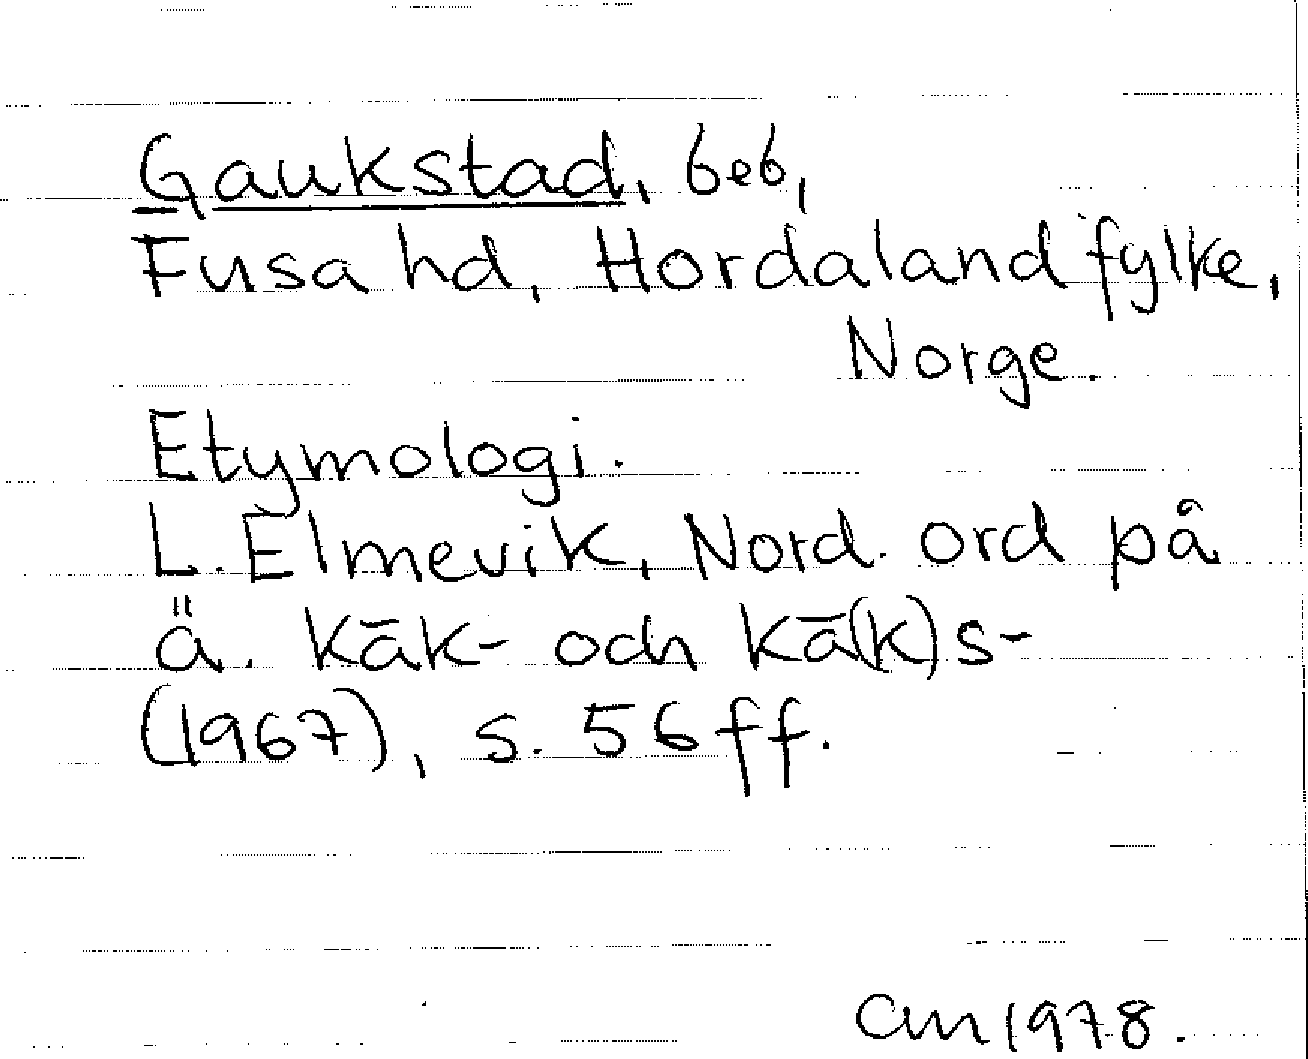 Gaukstad, beb,
Fusa hd, Hordaland fylke,
Norge.
Etymologi.
L. Elmevik, Nord. ord på
ä. kāk- och kā(k)s-
(1967), s. 56 ff.
CM 1978.